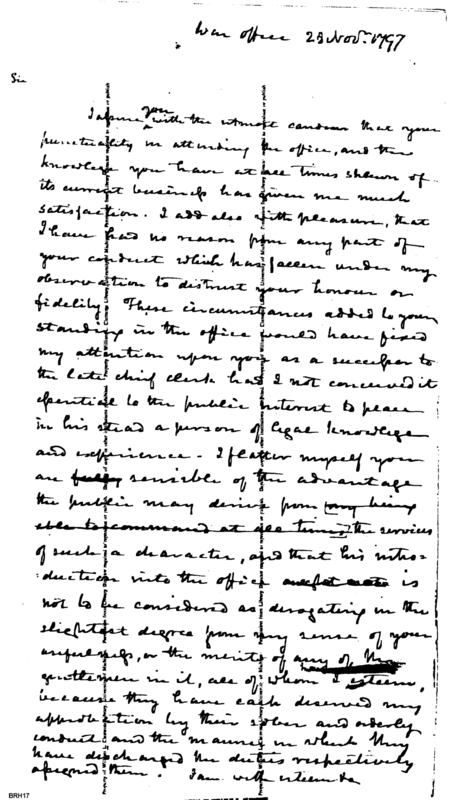 War office 23 Nov.r 1797
Sir
I assure you with the utmost candour that your
punctuality in attending the office, and the
knowledge you have at all times shewn of
its current business has given me much
satisfaction. I add also with pleasure, that
I have had no reason from any part of
your conduct which has fallen under my
observation to distrust your honour or
fidelity. These circumstances added to your
standing in the office would have fixed
my attention upon you as a successor to
the late chief clerk had I not conceived it
essential to the public interest to place
in his stead a person of legal knowledge
and experience. I flatter myself you
are fully sensible of the advantage
the public may derive from my being
able to command at all times the services
of such a character, and that his intro-
:duction into the office is
not to be considered as derogating in the
slightest degree from my sense of your
usefulness, or the merits of any of the
gentlemen in it, all of whom I esteem,
because they have each deserved my
approbation by their sober and orderly
conduct and the manner in which they
have discharged the duties respectively
assigned them. I am with esteem &c
BRH17